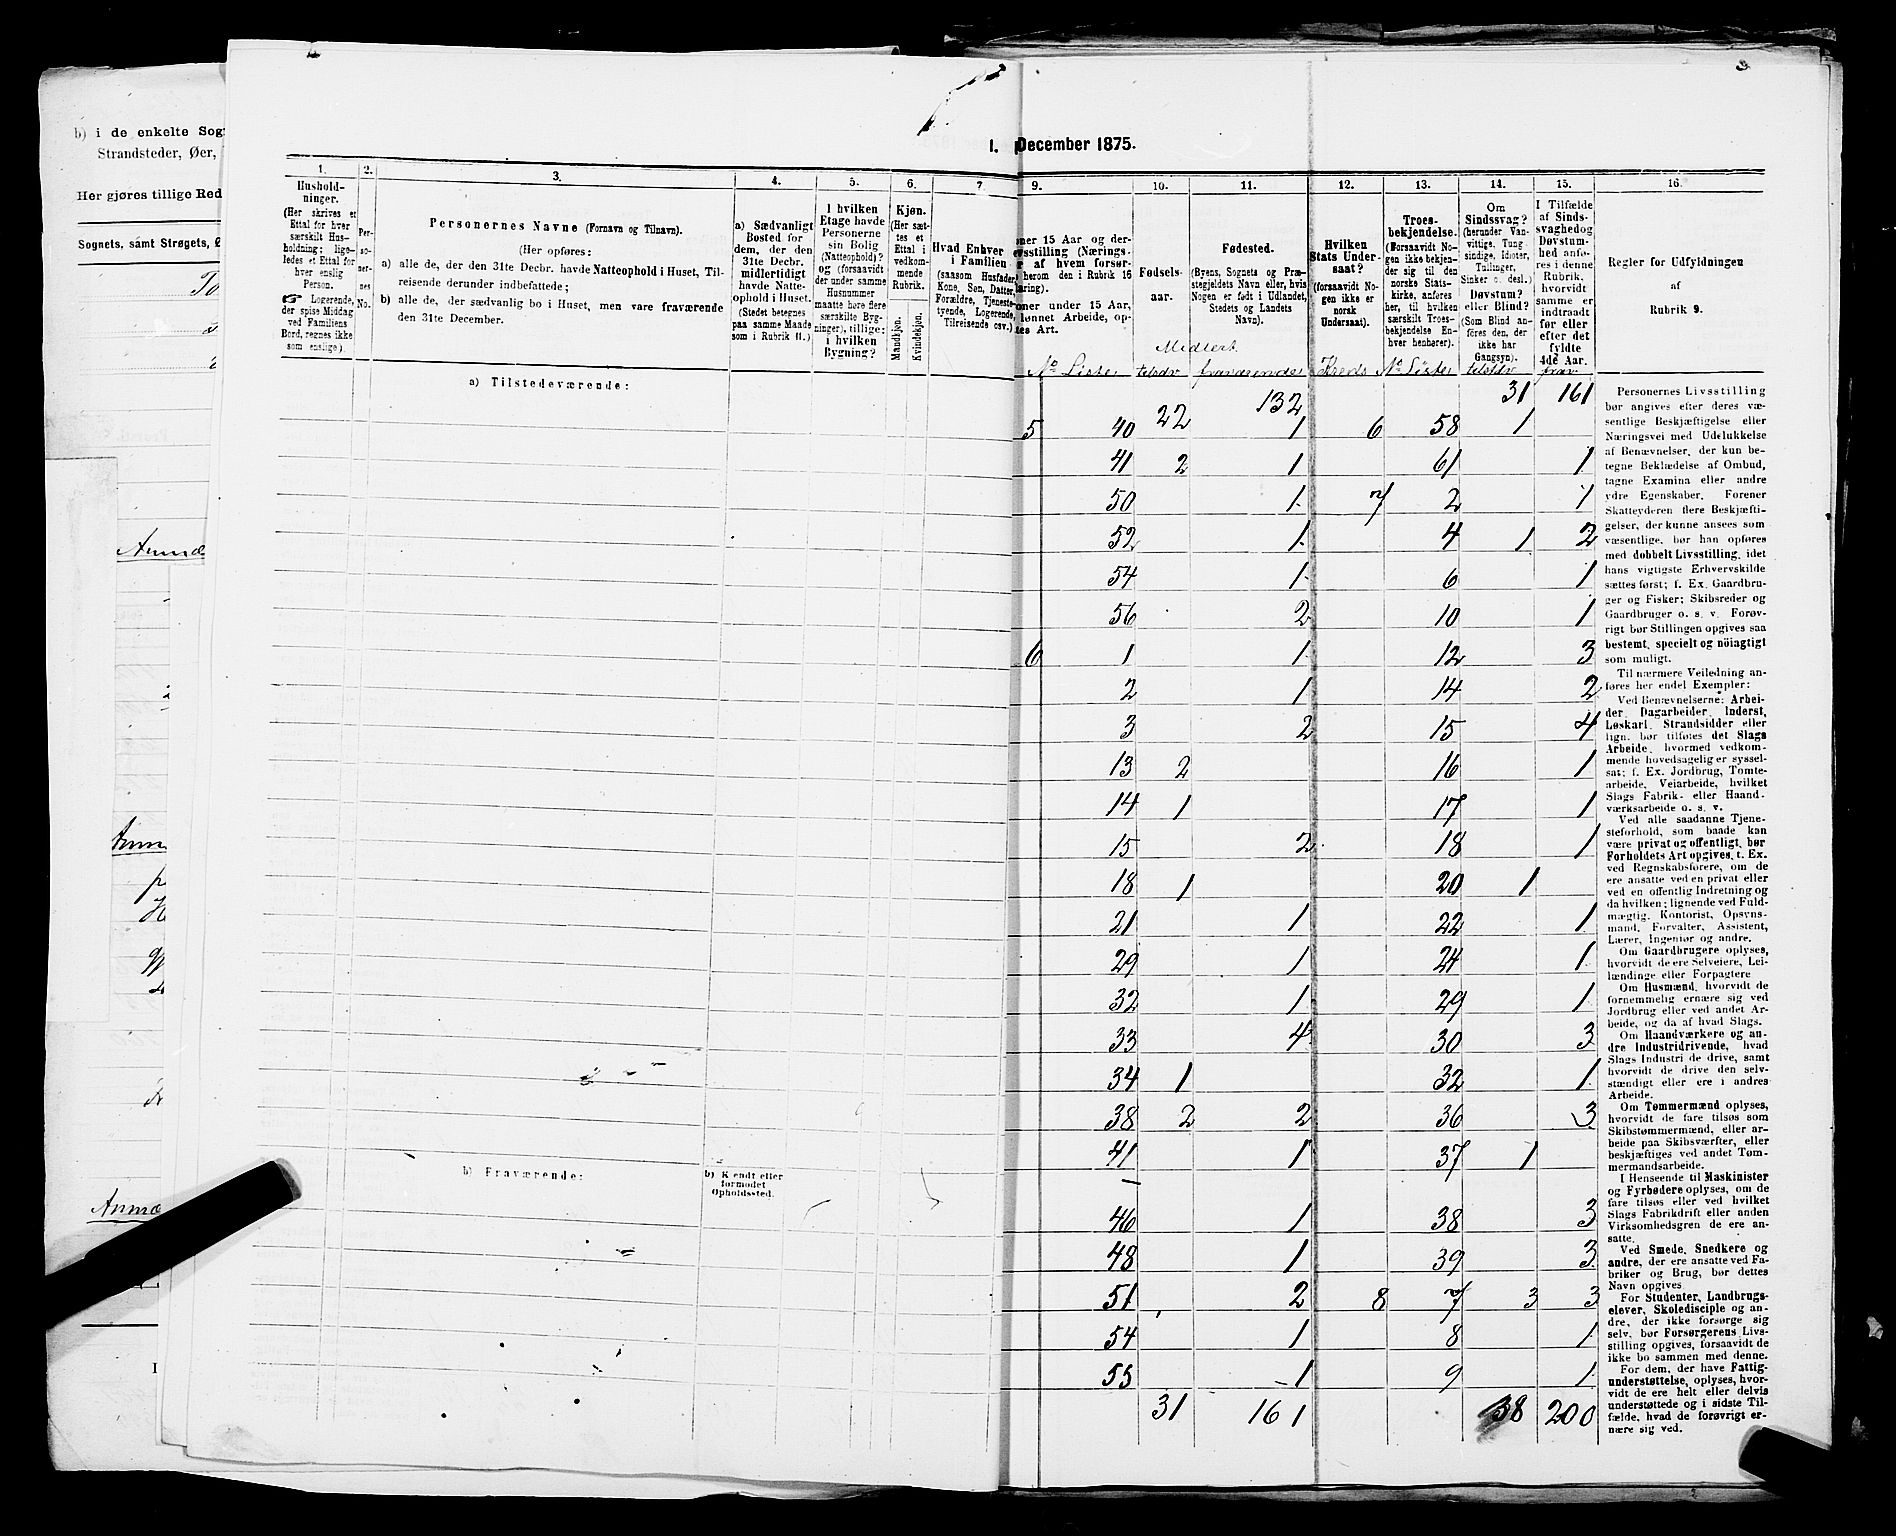 b) i de enkelte Sog
Strandsteder, Øer,
Her gjøres tillige Red
Sognets, samt Strøgets,
Anmæ
Anmæ
1. December 1875.
1.
Hushold-
ninger.
(Her skrives et
Ettal for hver
særskilt Hus-
holdning; lige-
ledes et Ettal for
hver enslig
Person.
☞ Logerende,
der spise Middag
ved Familiens
Bord, regnes ikke
som enslige).
2.
Per-
so-
ner-
nes
No.
3.
Personernes Navne (Fornavn og Tilnavn).
(Her opføres:
a) alle de, der den 31te Decbr. havde Natteophold i Huset, Til-
reisende derunder indbefattede;
b) alle de, der sædvanlig bo i Huset, men vare fraværende
den 31te December.
4.
a) Sædvanligt
Bosted for
dem, der den
31te Decbr.
midlertidigt
havde Natte-
ophold i Huset.
(Stedet betegnes
paa samme Maade
som i Rubrik 11.)
5.
I hvilken
Etage havde
Personerne
sin Bolig
(Natteophold)?
og (forsaavidt
der under samme
Husnummer
maatte høre flere
særskilte Byg-
ninger), tillige:
i hvilken
Bygning?
6.
Kjøn.
(Her sæt-
tes et
Ettal i
vedkom-
mende
Rubrik.
Mandkjøn.
Kvindekjøn.
7.
Hvad Enhver
i Familien
(saasom Husfader,
Kone, Søn, Datter,
Forældre, Tjeneste-
tyende, Logerende,
Tilreisende osv.)
9.
ner 15 Aar og der-
vsstilling (Nærings-
r af hvem forsør-
herom den i Rubrik 16
æring).
oner under 15 Aar,
lønnet Arbeide, op-
tes Art.
10.
Fødsels-
aar.
11.
Fødested.
(Byens, Sognets og Præ-
stegjeldets Navn eller, hvis
Nogen er født i Udlandet,
Stedets og Landets
Navn).
12.
Hvilken
Stats Under-
saat?
(forsaavidt No-
gen ikke er
norsk
Undersaat).
13.
Troes-
bekjendelse.
(Forsaavidt No-
gen ikke bekjen-
der sig til den
norske Stats-
kirke, anføres
her, til hvilken
særskilt Troes-
bekjendelse En-
hver henhører).
14.
Om
Sindssvag?
(herunder Van-
vittige, Tung
sindige, Idioter,
Tullinger,
Sinker o. desl.)
Døvstum?
eller Blind?
(Som Blind an-
føres den, der
ikke har
Gangsyn).
15.
I Tilfælde
af Sinds-
svaghed og
Døvstum-
hed anfø-
res i denne
Rubrik.
hvorvidt
samme er
indtraadt
før eller
efter det
fyldte
4de Aar.
16.
Regler for Udfyldningen
af
Rubrik 9.
Midlert.
No Liste tilstdv fraværende Kreds No Liste tilstdv frav
a) Tilstedeværende:
22 132 31 161
5 40 1 6 58 1
41 2 1 61 1
50 1 7 2 1
52 1 4 1 2
54 1 6 1
56 2 10 1
6 1 1 12 3
2 1 14 2
3 2 15 4
13 2 16 1
14 1 17 1
15 2 18 1
18 1 20 1
21 1 22 1
29 1 24 1
32 1 29 1
33 4 30 3
34 1 32 1
38 2 2 36 3
41 1 37 1
b) Fraværende:
b) Kjendt eller
formodet
Opholdssted.
46 1 38 3
48 1 39 3
51 2 8 7 3 3
54 1 8 1
55 1 9 1
31 161 38 200
Personernes Livsstilling
bør angives efter deres væ-
sentlige Beskjæftigelse eller
Næringsvei med Udelukkelse
af Benævnelser, der kun be-
tegne Beklædelse af Ombud,
tagne Examina eller andre
ydre Egenskaber. Forener
Skatteyderen flere Beskjæfti-
gelser, der kunne ansees som
væsentlige, bør han opføres
med dobbelt Livsstilling, idet
hans vigtigste Erhvervskilde
sættes først; f. Ex. Gaardbru-
ger og Fisker; Skibsreder og
Gaardbruger o. s. v. Forøv-
rigt bør Stillingen opgives saa
bestemt, specielt og nöiagtigt
som muligt.
Til nærmere Veiledning an-
føres her endel Exempler:
Ved Benævnelserne: Arbei-
der, Dagarbeider, Inderst,
Løskarl, Strandsidder eller
lign. bør tilføies det Slags
Arbeide, hvormed vedkom-
mende hovedsagelig er syssel-
sat; f. Ex. Jordbrug, Tomte-
arbeide, Veiarbeide, hvilket
Slags Fabrik- eller Haand-
værksarbeide o. s. v.
Ved alle saadanne Tjene-
steforhold, som baade kan
være privat og offentligt, bør
Forholdets Art opgives, t. Ex.
ved Regnskabsførere, om de
ere ansatte ved en privat eller
ved en offentlig Indretning og
da hvilken; lignende ved Fuld-
mægtig, Kontorist, Opsyns-
mand, Forvalter, Assistent,
Lærer, Ingeniør og andre.
Om Gaardbrugere oplyses,
hvorvidt de ere Selveiere, Lei-
lændinge eller Forpagtere
Om Husmænd, hvorvidt de
fornemmelig ernære sig ved
Jordbrug eller ved andet Ar-
beide, og da af hvad Slags.
Om Haandværkere og an-
dre Industridrivende, hvad
Slags Industri de drive, samt
hvorvidt de drive den selv-
stændigt eller ere i andres
Arbeide.
Om Tømmermænd oplyses,
hvorvidt de fare tilsøs som
Skibstømmermænd, eller ar-
beide paa Skibsværfter, eller
beskjæftiges ved andet Tøm-
mermandsarbeide.
I Henseende til Maskinister
og Fyrbødere oplyses, om de
fare tilsøs eller ved hvilket
Slags Fabrikdrift eller anden
Virksomhedsgren de ere an-
satte.
Ved Smede, Snedkere og
andre, der ere ansatte ved Fa-
briker og Brug, bør dettes
Navn opgives
For Studenter, Landbrugs-
elever, Skoledisciple og an-
dre, der ikke forsørge sig
selv, bør Forsørgerens Livs-
stilling opgives, forsaavidt de
ikke bo sammen med denne.
For dem, der have Fattig-
understøttelse, oplyses, hvor-
vidt de ere helt eller delvis
understøttede og i sidste Til-
fælde, hvad de forøvrigt er-
nære sig ved.